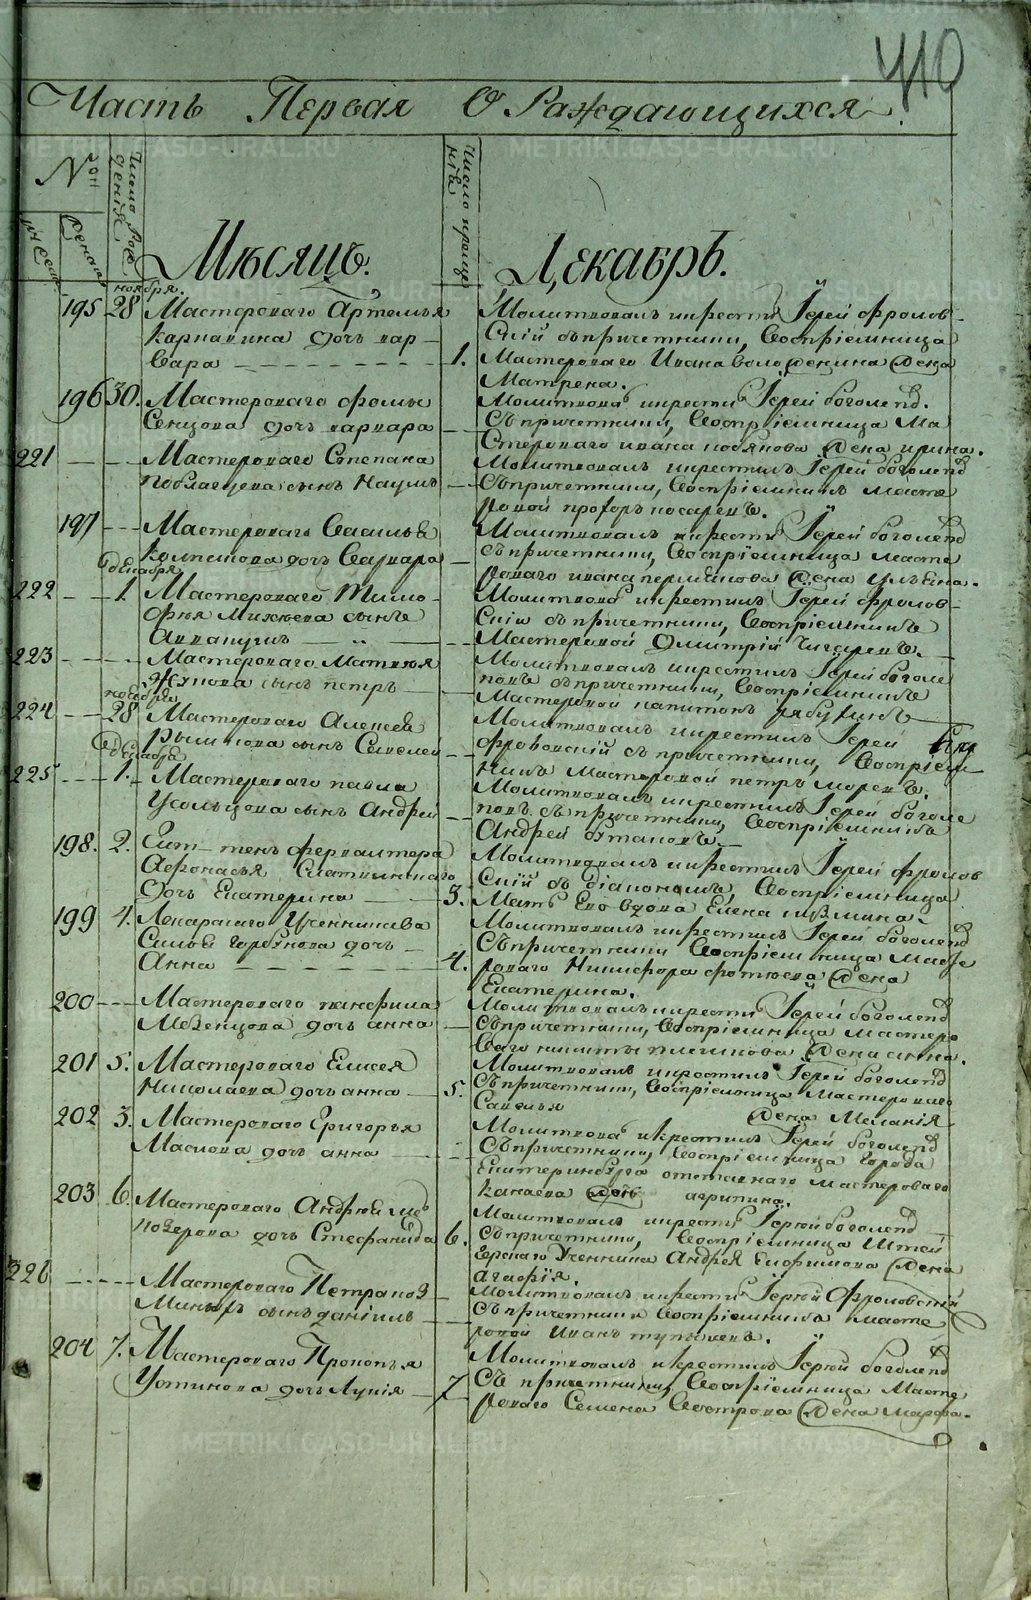 410
Часть Первая О Раждающихся
№
Число рождения
Число крещенія
мужеска
женска
Мѣсяцъ.
Декабрь.
ноября.
195 28 Мастероваго Артемья
Карнаѵина дочь вар-
вара
Молитвовалъ и крести Іерей фролов-
скій съ причетники, воспріемница
1. Мастероваго Ивана жена
Матрена.
196 30. Мастероваго фомы
Сенцова дочь варвара
Молитвовалъ и крести Іерей боголеп.
съ причетники, воспріемница ма
стероваго ивана жена ирина.
221 Мастероваго Степана
сынъ Наумъ
Молитвовалъ и крестилъ Іерей боголеп
съ причетники, воспріемникъ масте
ровой прохоръ косаревъ.
197 Мастероваго Василья
дочь Варвара
Молитвовалъ и крести Іерей боголеп
съ причетники, воспріемница масте
роваго ивана жена ульяна.
декабря
222 1. Мастероваго Тимо-
фѣя Михѣева сынъ
Молитвовалъ и крестилъ Іерей фролов-
скій съ причетники, воспріемникъ
Мастеровой Димитрій
223 Мастероваго Матвѣя
Жукова сынъ петръ
Молитвовалъ и крестилъ Іерей боголе
повъ съ причетники, воспріемникъ
Мастеровой капитонъ рябухинъ
ноября
224 28 Мастероваго Алексѣя
сынъ Савелей
Молитвовалъ и крестилъ Іерей
фроловскій съ причетники, воспріем
никъ мастеровой петръ
декабря
225 1. Мастероваго павла
Усольцова сынъ Андрей
Молитвовалъ и крестилъ Іерей боголе
повъ съ причетники, воспріемникъ
Андрей
198. 2. фервалтера
Афонасья
дочь Екатерина
Молитвовалъ и крестилъ Іерей фролов
скій съ діакономъ, воспріемница
3. мать Ево вдова Елена
199 4. Лекарскаго Ученика
Силы Горбунова дочь
Анна
Молитвовалъ и крестилъ Іерей боголеп
съ причетники воспріемница масте
4. роваго Никифора фотеева жена
Екатерина.
200 Мастероваго панфила
Мезенцова дочь анна
Молитвовалъ и крести Іерей боголеп
съ причетники, воспріемница мастеро
ваго никиты жена анна.
201 5. Мастероваго Елисея
Николаева дочь анна
Молитвовалъ и крестилъ Іерей боголеп
5. съ причетники, воспріемница Мастероваго
Савелья жена Меланія
202 3. Мастероваго Григорья
Маслова дочь анна
Молитвовалъ и крестилъ Іерей боголеп
съ причетники, воспріемница города
Екатеринбурга отставнаго мастероваго
Канаева агрипина.
203 6. Мастероваго Андрея
дочь Стефанида
Молитвовалъ и крести Іерей боголеп
6. съ причетники, воспріемница
Ученика Андрея Ефимова жена
агафія.
226 Мастероваго Петра
сынъ даніилъ
Молитвовалъ и крести Іерей Фроловскій
съ причетники воспріемникъ масте
ровой Иванъ
204 7. Мастероваго Прокопья
Устинова дочь Лукія
Молитвовалъ и крестилъ Іерей боголеп
7 съ причетники, воспріемница масте
роваго Семена Вострова жена марфа.
METRIKI.GASO-URAL.RU